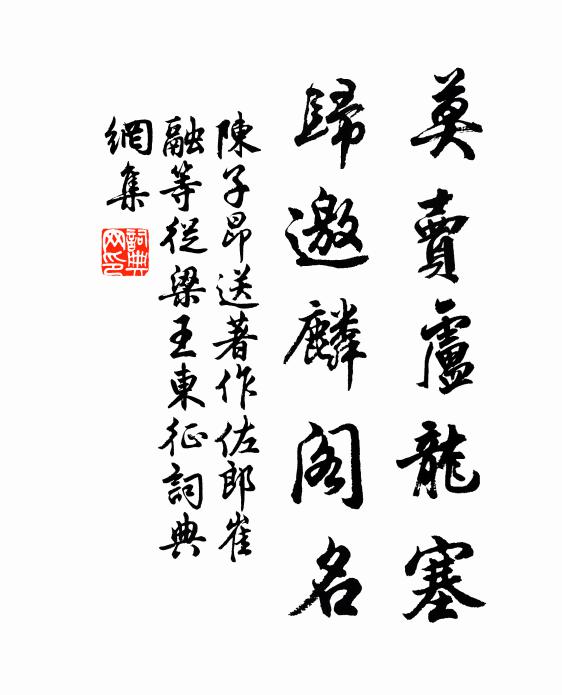 莫賣盧龍塞
歸邀麟閣名
陳子昂送著作佐郎崔
融等從梁王東征詞典
網集
詞典
网印